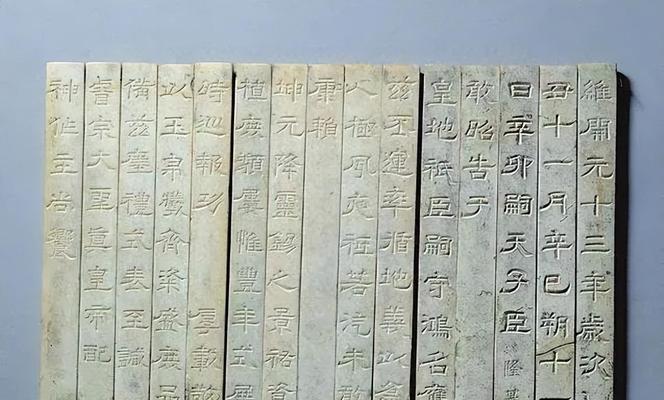 維開元十三年歲次
丑十一月辛巳朔十一
日辛卯嗣天子臣隆基
敢昭告于
皇地祇臣嗣守鴻名膺
茲丕運率循地義以為
人極夙夜祗若汔未敢
康賴
坤元降靈錫之景祐資
植庶類屢惟豐年式展
時巡報功 厚載敬
以玉帛犧齊粢盛庶品
備茲瘞禮式表至誠
睿宗大聖眞皇帝配
神作主尚饗